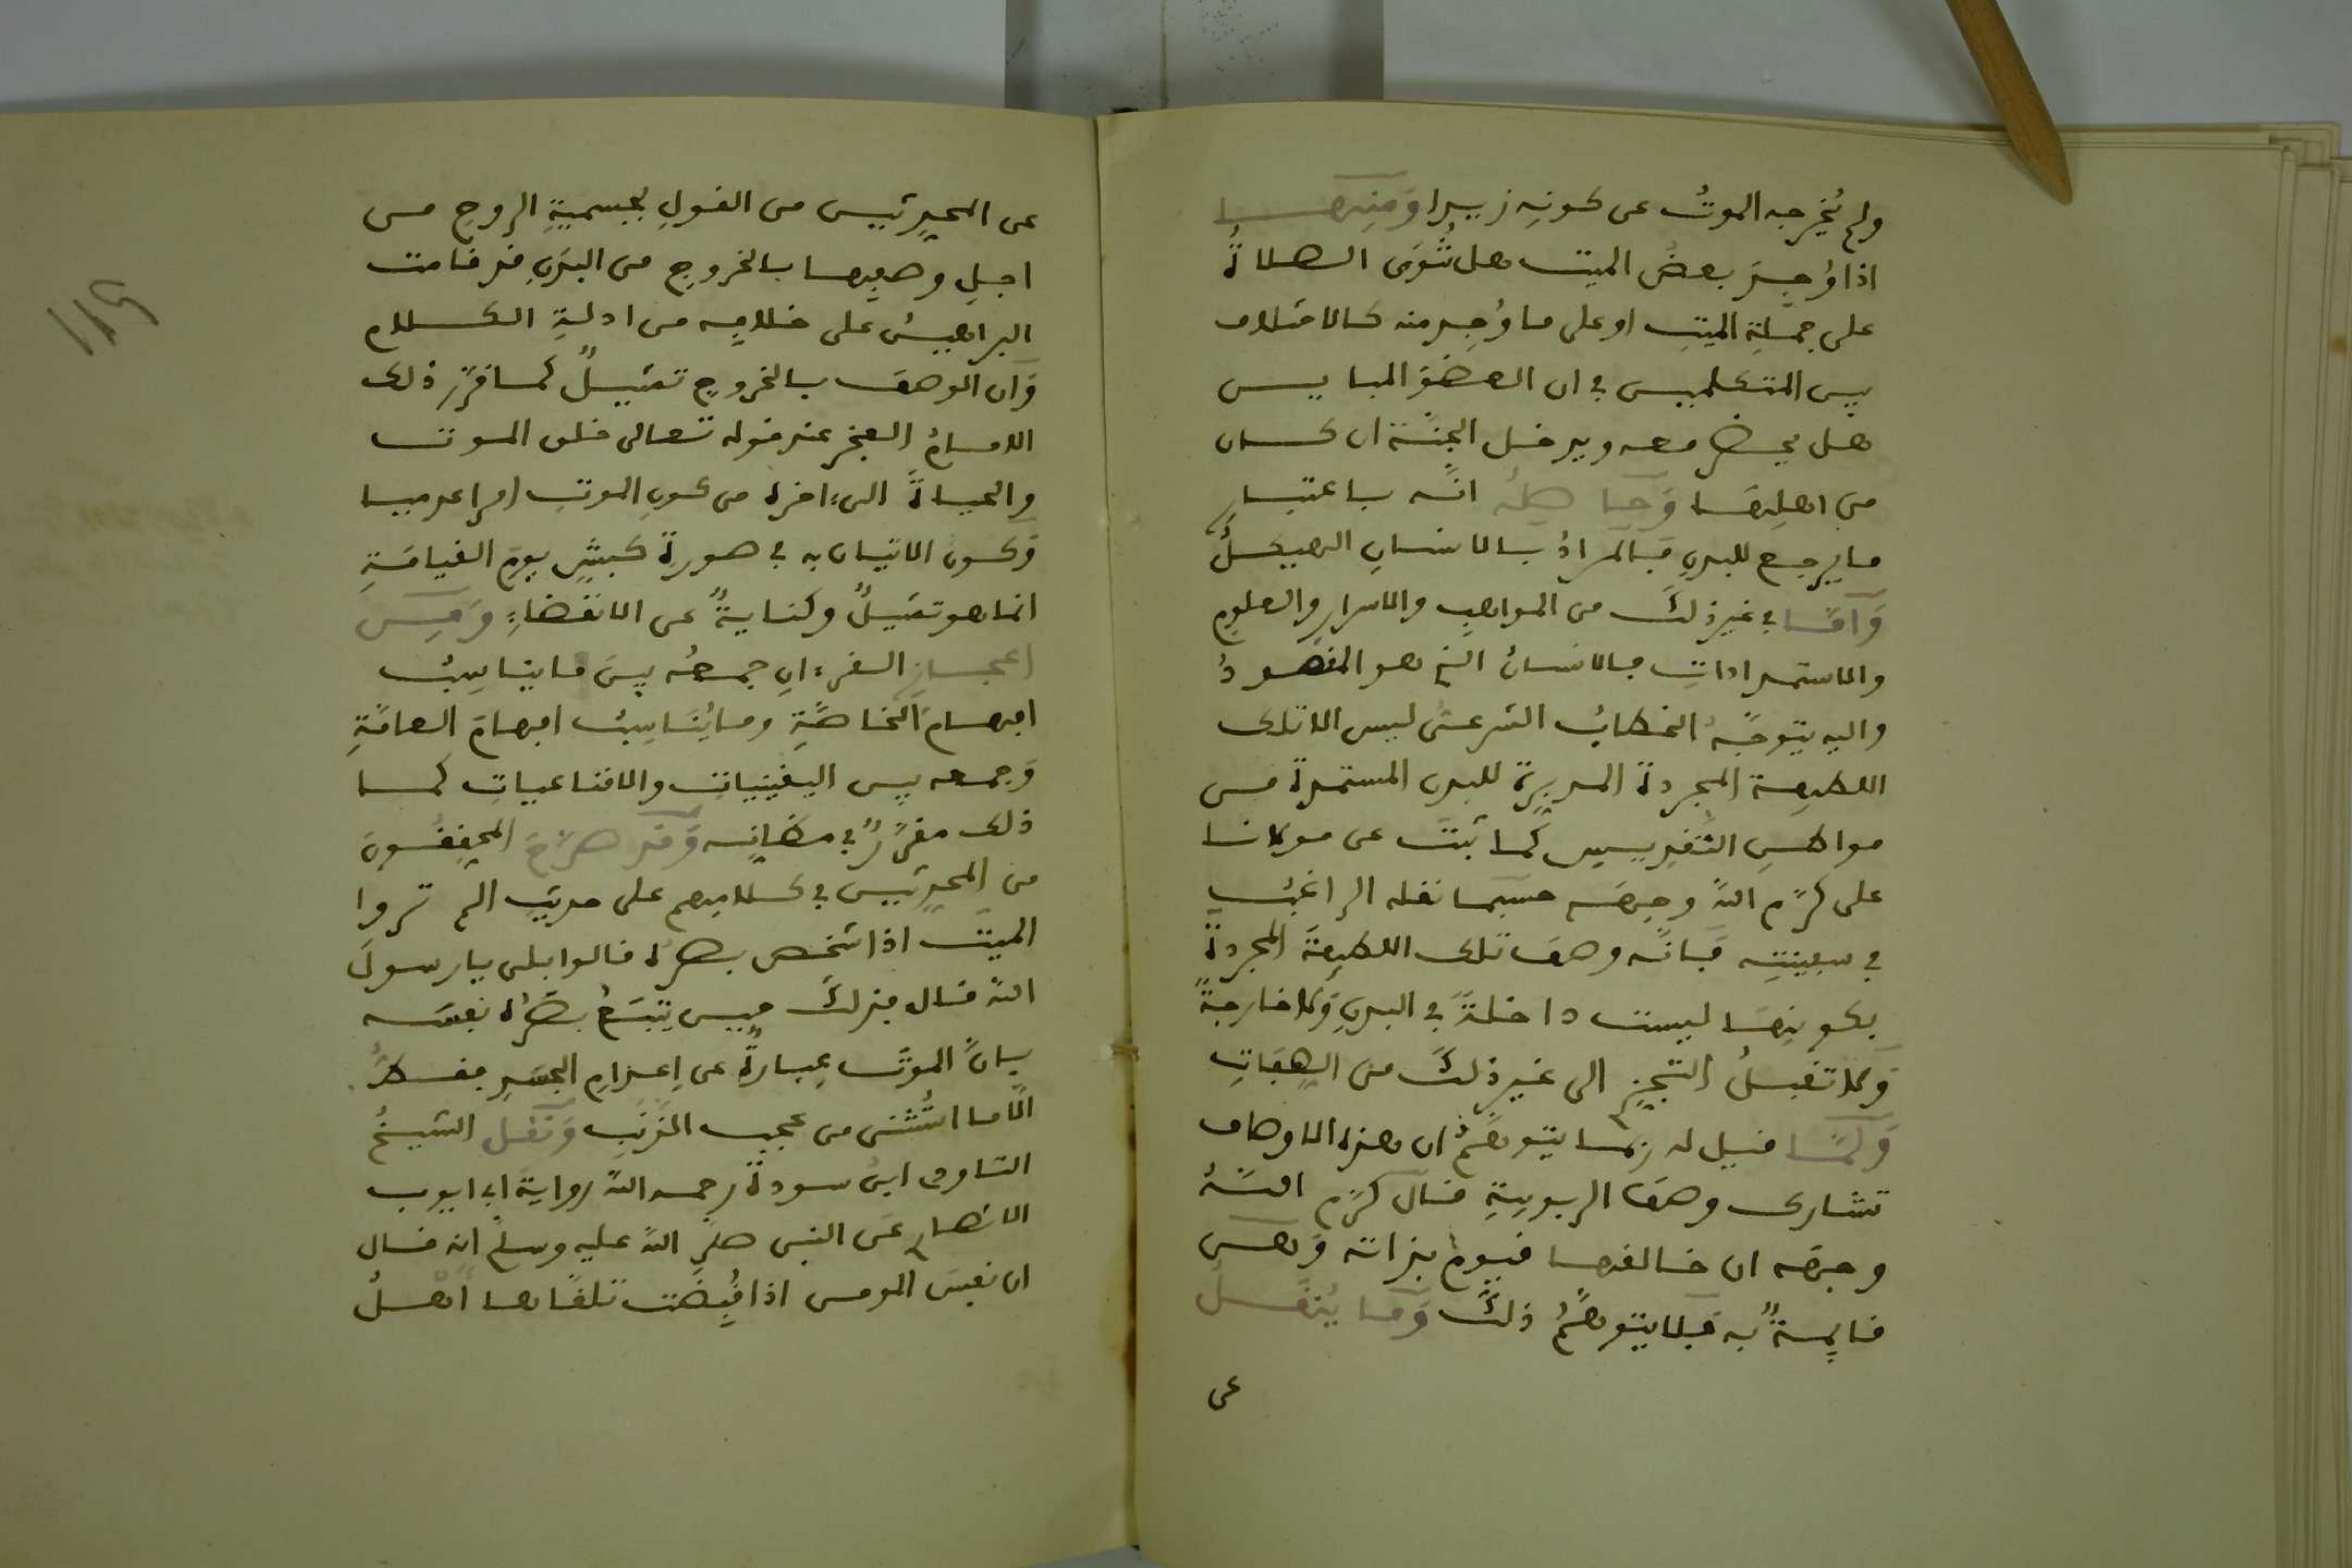 ولم يُخرجه الموتُ عن كونِه زيدا وَمنها
اذا وُجِدَ بعضُ الميت هل تُنوَى الصلاةُ
على جملةِ الميتِ او على ما وُجِد منه كالاختلاف
بين المتكلمين في ان العضوَ المباين
هل يحضر معه ويدخل الجنّة ان كان
من اهلِها وَحاصلُه انّه باعتبارِ
ما يرجع للبدنِ فالمرادُ بالانسانِ الهيكلُ
وَامّا في غيرِ ذلكَ من المواهبِ والاسرارِ والعلومِ
والاستمداداتِ فالانسانُ الذي هو المقصودُ
واليه يتوجّهُ الخطابُ الشرعيُّ ليس الا تلك
اللطيفة المجردة المدبِّرة للبدن المستمدة من
مواطنِ التقديسِ كما ثبتَ عن مولانا
على كرّم اللهُ وجهَه حسبما نقله الراغبُ
في سفينتِه فانّه وصفَ تلك اللطيفةَ المجردةَ
بكونِها ليست داخلةً في البدنِ وَلا خارجةً
وَلا تقبلُ التجزِّي الى غير ذلكَ من الصِفاتِ
وَلمّا قيل له ربما يتوهّمُ ان هذه الاوصاف
تشارك وصفَ الربوبيةِ قال كرّم اللهُ
وجهَه ان خالقها قيوم بذاته وَهي
قايمةٌ به فلا يتوهّمُ ذلكَ وَما يُنقَلُ
عن
عن المحدِّثين من القولِ بجسميةِ الروحِ من
اجلِ وصفِها بالخروجِ من البدنِ قد قامت
البراهينُ على خلافِه من ادلةِ الكلام
وَان الوصفَ بالخروجِ تمثيلٌ كما قرّر ذلك
الامامُ الفخر عند قوله تعالى خلق الموت
والحياةَ الى ءاخره من كونِ الموتِ امرا عدميا
وَكون الاتيان به في صورة كبشٍ يومَ القيامَةِ
انما هو تمثيلٌ وكنايةٌ عن الانقضاءِ وَمن
اعجازِ القرءانِ جمعُه بينَ ما يناسِبُ
افهامَ الخاصّةِ وما يُناسِبُ افهامَ العامّةِ
وَجمعه بين اليقينياتِ والاقناعياتِ كما
ذلك مقرّرٌ في مظانِّه وَقد صرّحَ المحققونَ
من المحدِّثين في كلامِهم على حديثِ الم تروا
الميّتَ اذا شخص بصرُه قالوا بلى يا رسولَ
الله قال فذلكَ حين يتبَعُ بصرُه نفسَه
بانّ الموتَ عِبارةٌ عن اِعدامِ الجسَدِ فقط
الّا ما استُثنى من عجبِ الذنَبِ وَنقل الشيخُ
التاودي ابنُ سودةَ رحمه اللهُ روايةَ ابي ايوب
الانصاري عن النبي صلى اللهُ عليه وسلم انه قال
ان نفسَ المومن اذا قُبِضَت تلقّاها اهلُ